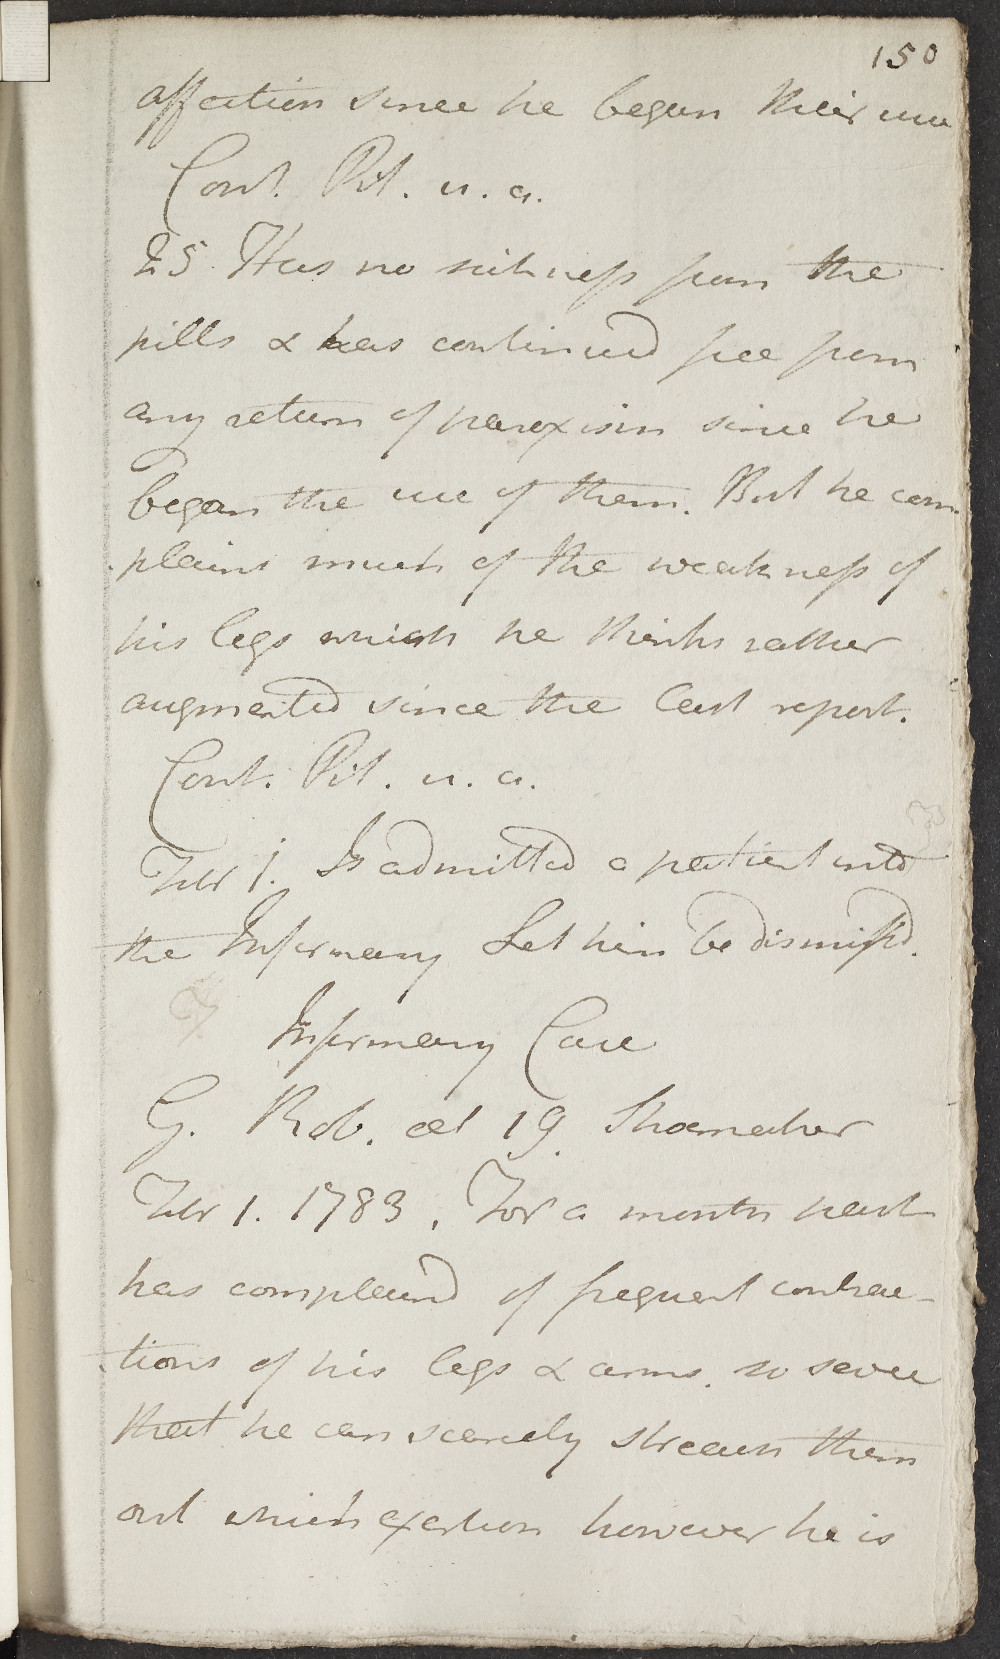 150
affection since he began their use
Cont. Pil. u. a.
25. Has no sickness from the
pills & has continued free from
any return of paroxism since he
began the use of them. But he com
plains much of the weakness of
his legs which he thinks rather
augmented since the last report.
Cont. Pil. u. a.
Febr 1. Is admitted a patient into
the Infirmary Let him be dismissd.
Infirmary Case
G. Rob. aet 19. Shoemaker
Febr 1. 1783. For a month past
has complaind of frequent contrac-
tions of his legs & arms. so severe
that he can scarcely streach them
out which exertion however he is